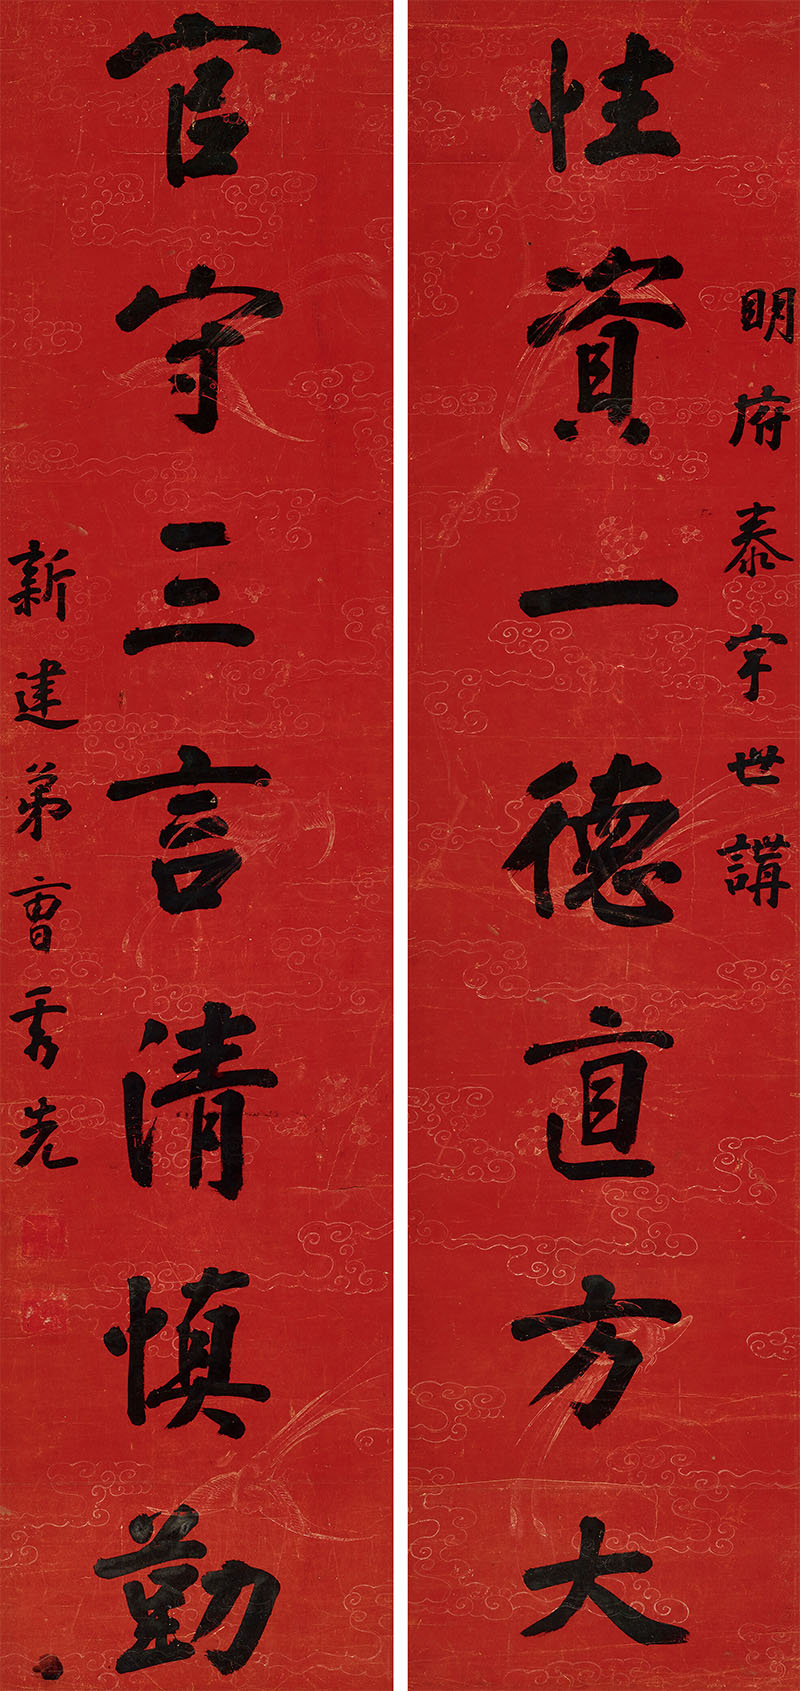 明府泰宇世講
性資一德直方大
官守三言清慎勤
新建弟曹秀先